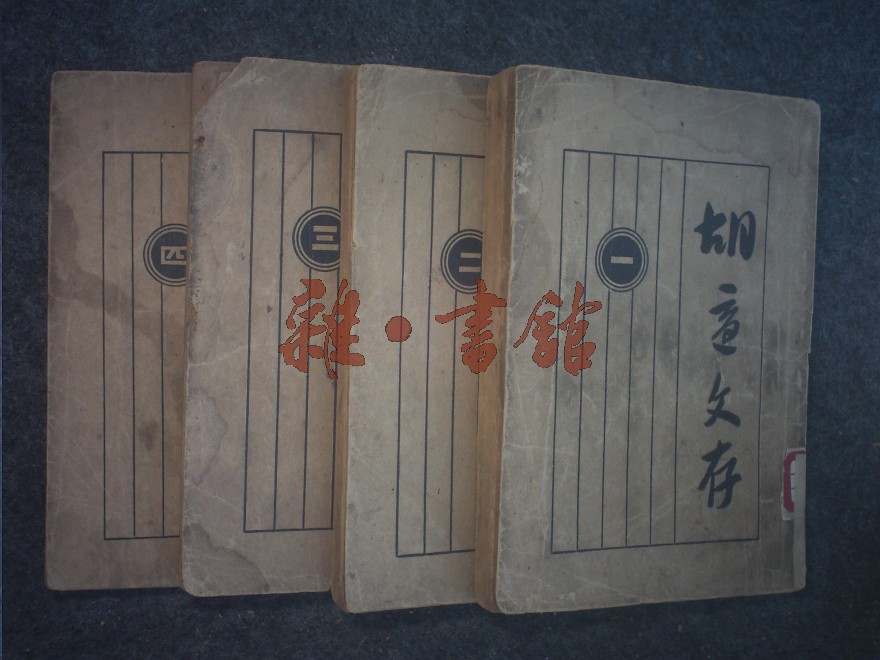 胡适文存
一
二
三
四
雜·書館